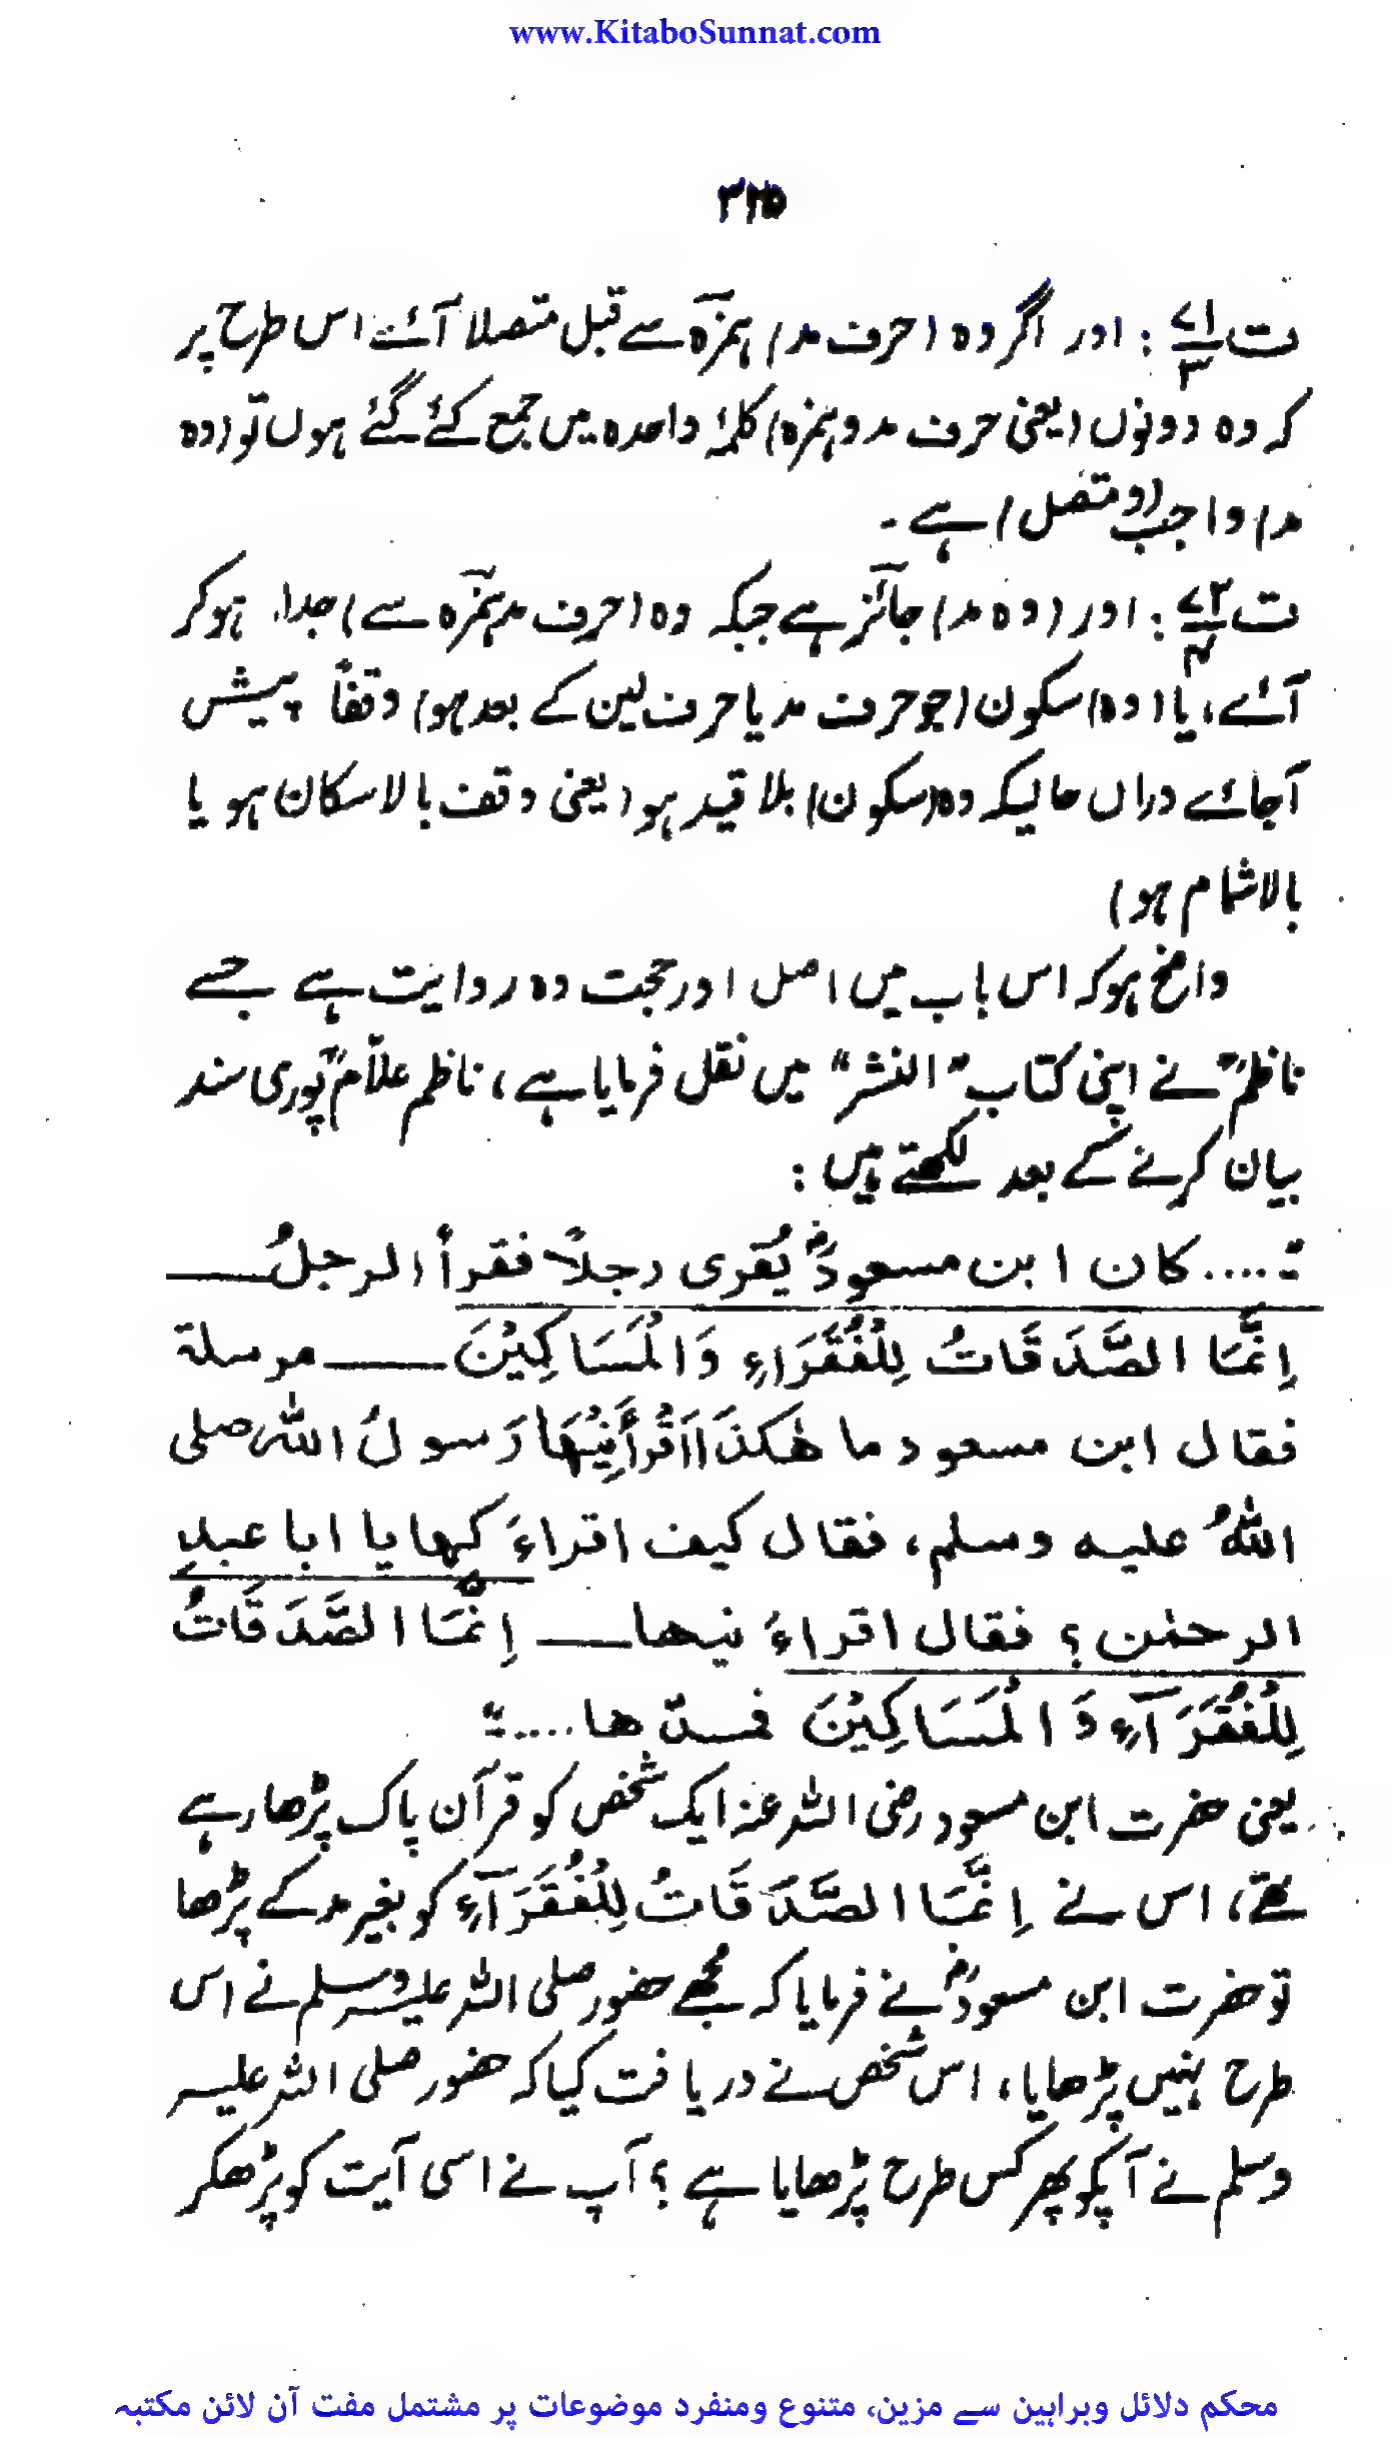 www.KitaboSunnat.com
۳۲۵
ت ۷۱/۳ : اور اگر وہ (حرف مد) ہمزہ سے قبل متصلاً آئے اس طرح پر
کہ وہ دونوں (یعنی حرف مد و ہمزہ) کلمۂ واحدہ میں جمع کئے گئے ہوں تو (وہ
مد) واجب (و متصل) ہے۔
ت ۷۲/۴ : اور (وہ مد) جائز ہے جبکہ وہ (حرف مد ہمزہ سے) جدا ہوکر
آئے، یا (وہ) سکون (جو حرف مد یا حرف لین کے بعد ہو) وقفاً پیش
آجائے دراں حالیکہ وہ (سکون) بلا قید ہو (یعنی وقف بالاسکان ہو یا
بالاشمام ہو)
واضح ہوکہ اس باب میں اصل اور حجت وہ روایت ہے جسے
ناظمؒ نے اپنی کتاب "النشر" میں نقل فرمایا ہے، ناظم علامؒ پوری سند
بیان کرنے کے بعد لکھتے ہیں :
"....کان ابن مسعودؓ یُقری رجلاً فقرأ الرجلُ ——
اِنَّمَا الصَّدَقَاتُ لِلْفُقَرَاءِ وَالْمَسَاکِیْنَ —— مرسلۃ
فقال ابن مسعود ما ھٰکذَا اَقْرَأَنِیْھَا رَسولُ اللہ صلی
اللہُ علیہ وسلم، فقال کیف اقراءَ کہا یا ابا عبدِ
الرحمٰن ؟ فقال اقراءَ نیھا —— اِنَّمَا الصَّدَقَاتُ
لِلْفُقَرَآءِ وَالْمَسَاکِیْنَ فمدّھا...."
یعنی حضرت ابن مسعود رضی اللہ عنہ ایک شخص کو قرآن پاک پڑھا رہے
تھے، اس نے اِنَّمَا الصَّدَقَاتُ لِلْفُقَرَآءِ کو بغیر مد کے پڑھا
تو حضرت ابن مسعودؓ نے فرمایا کہ مجھے حضور صلی اللہ علیہ وسلم نے اس
طرح نہیں پڑھایا، اس شخص نے دریافت کیا کہ حضور صلی اللہ علیہ
وسلم نے آپکو پھر کس طرح پڑھایا ہے ؟ آپ نے اسی آیت کو پڑھکر
محکم دلائل وبراہین سے مزین، متنوع ومنفرد موضوعات پر مشتمل مفت آن لائن مکتبہ